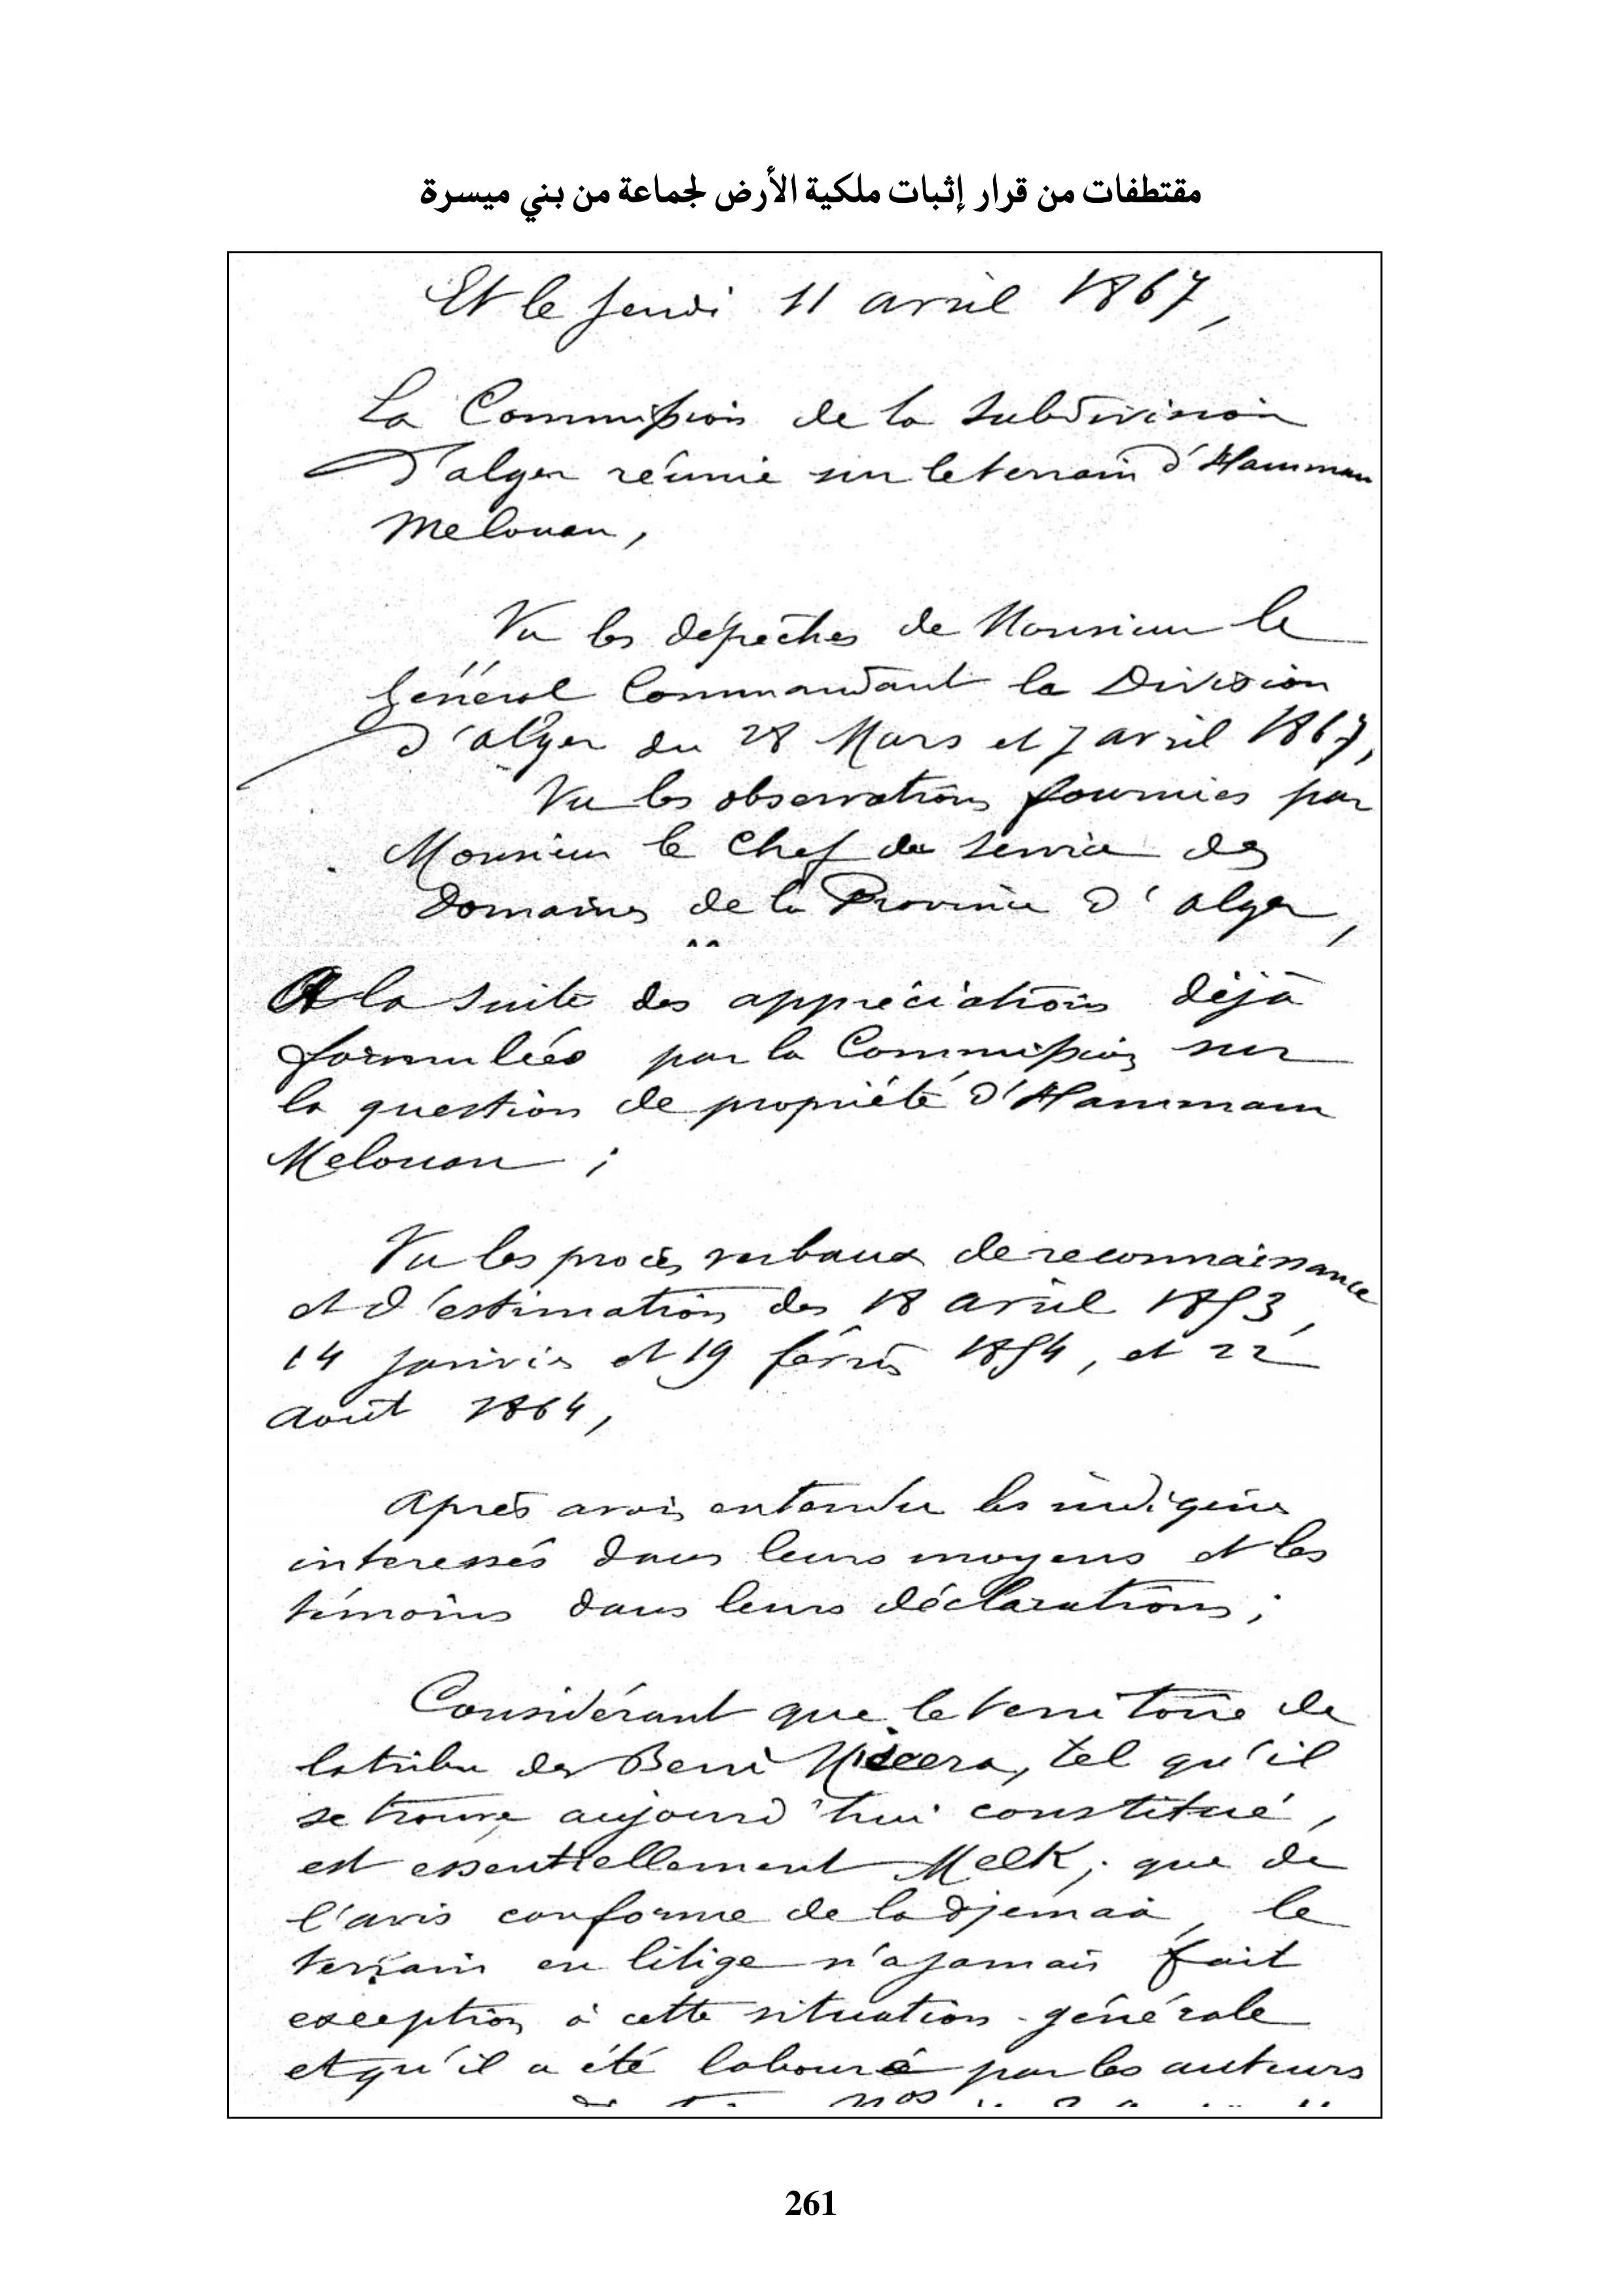 مقتطفات من قرار إثبات ملكية الأرض لجماعة من بني ميسرة
Et le Jeudi 11 avril 1867,
La Commission de la Subdivision
D'alger réunie sur le terrain d'Hammam
Melouan,
Vu les dépêches de Monsieur le
Général Commandant la Division
d'alger du 28 Mars et 7 avril 1867,
Vu les observations fournies par
Monsieur le Chef du Service des
Domaines de la Province D'alger,
A la suite des appréciations déjà
formulées par la Commission sur
la question de propriété d'Hammam
Melouan ;
Vu les procès verbaux de reconnaissance
et d'estimation des 18 avril 1853,
14 janvier et 19 février 1854, et 22
Août 1864,
Après avoir entendu les indigènes
interessés dans leurs moyens et les
témoins dans leurs déclarations ;
Considérant que le territoire de
la tribu des Beni Miscera, tel qu'il
se trouve aujourd'hui constitué,
est essentiellement Melk ; que de
l'avis conforme de la djemaâ, le
terrain en litige n'a jamais fait
exception à cette situation générale
et qu'il a été labouré par les auteurs
261